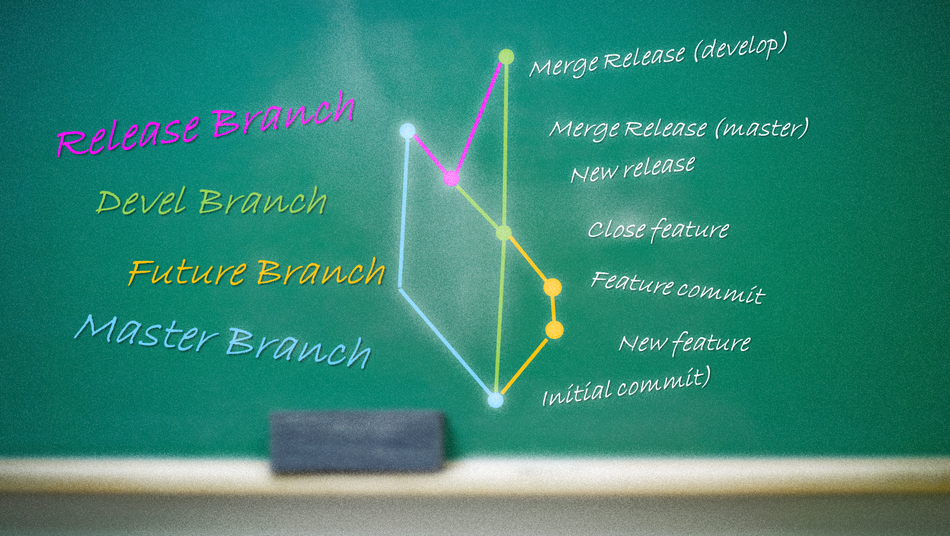 Release Branch
Devel Branch
Future Branch
Master Branch
Merge Release (develop)
Merge Release (master)
New release
Close feature
Feature commit
New feature
Initial commit)